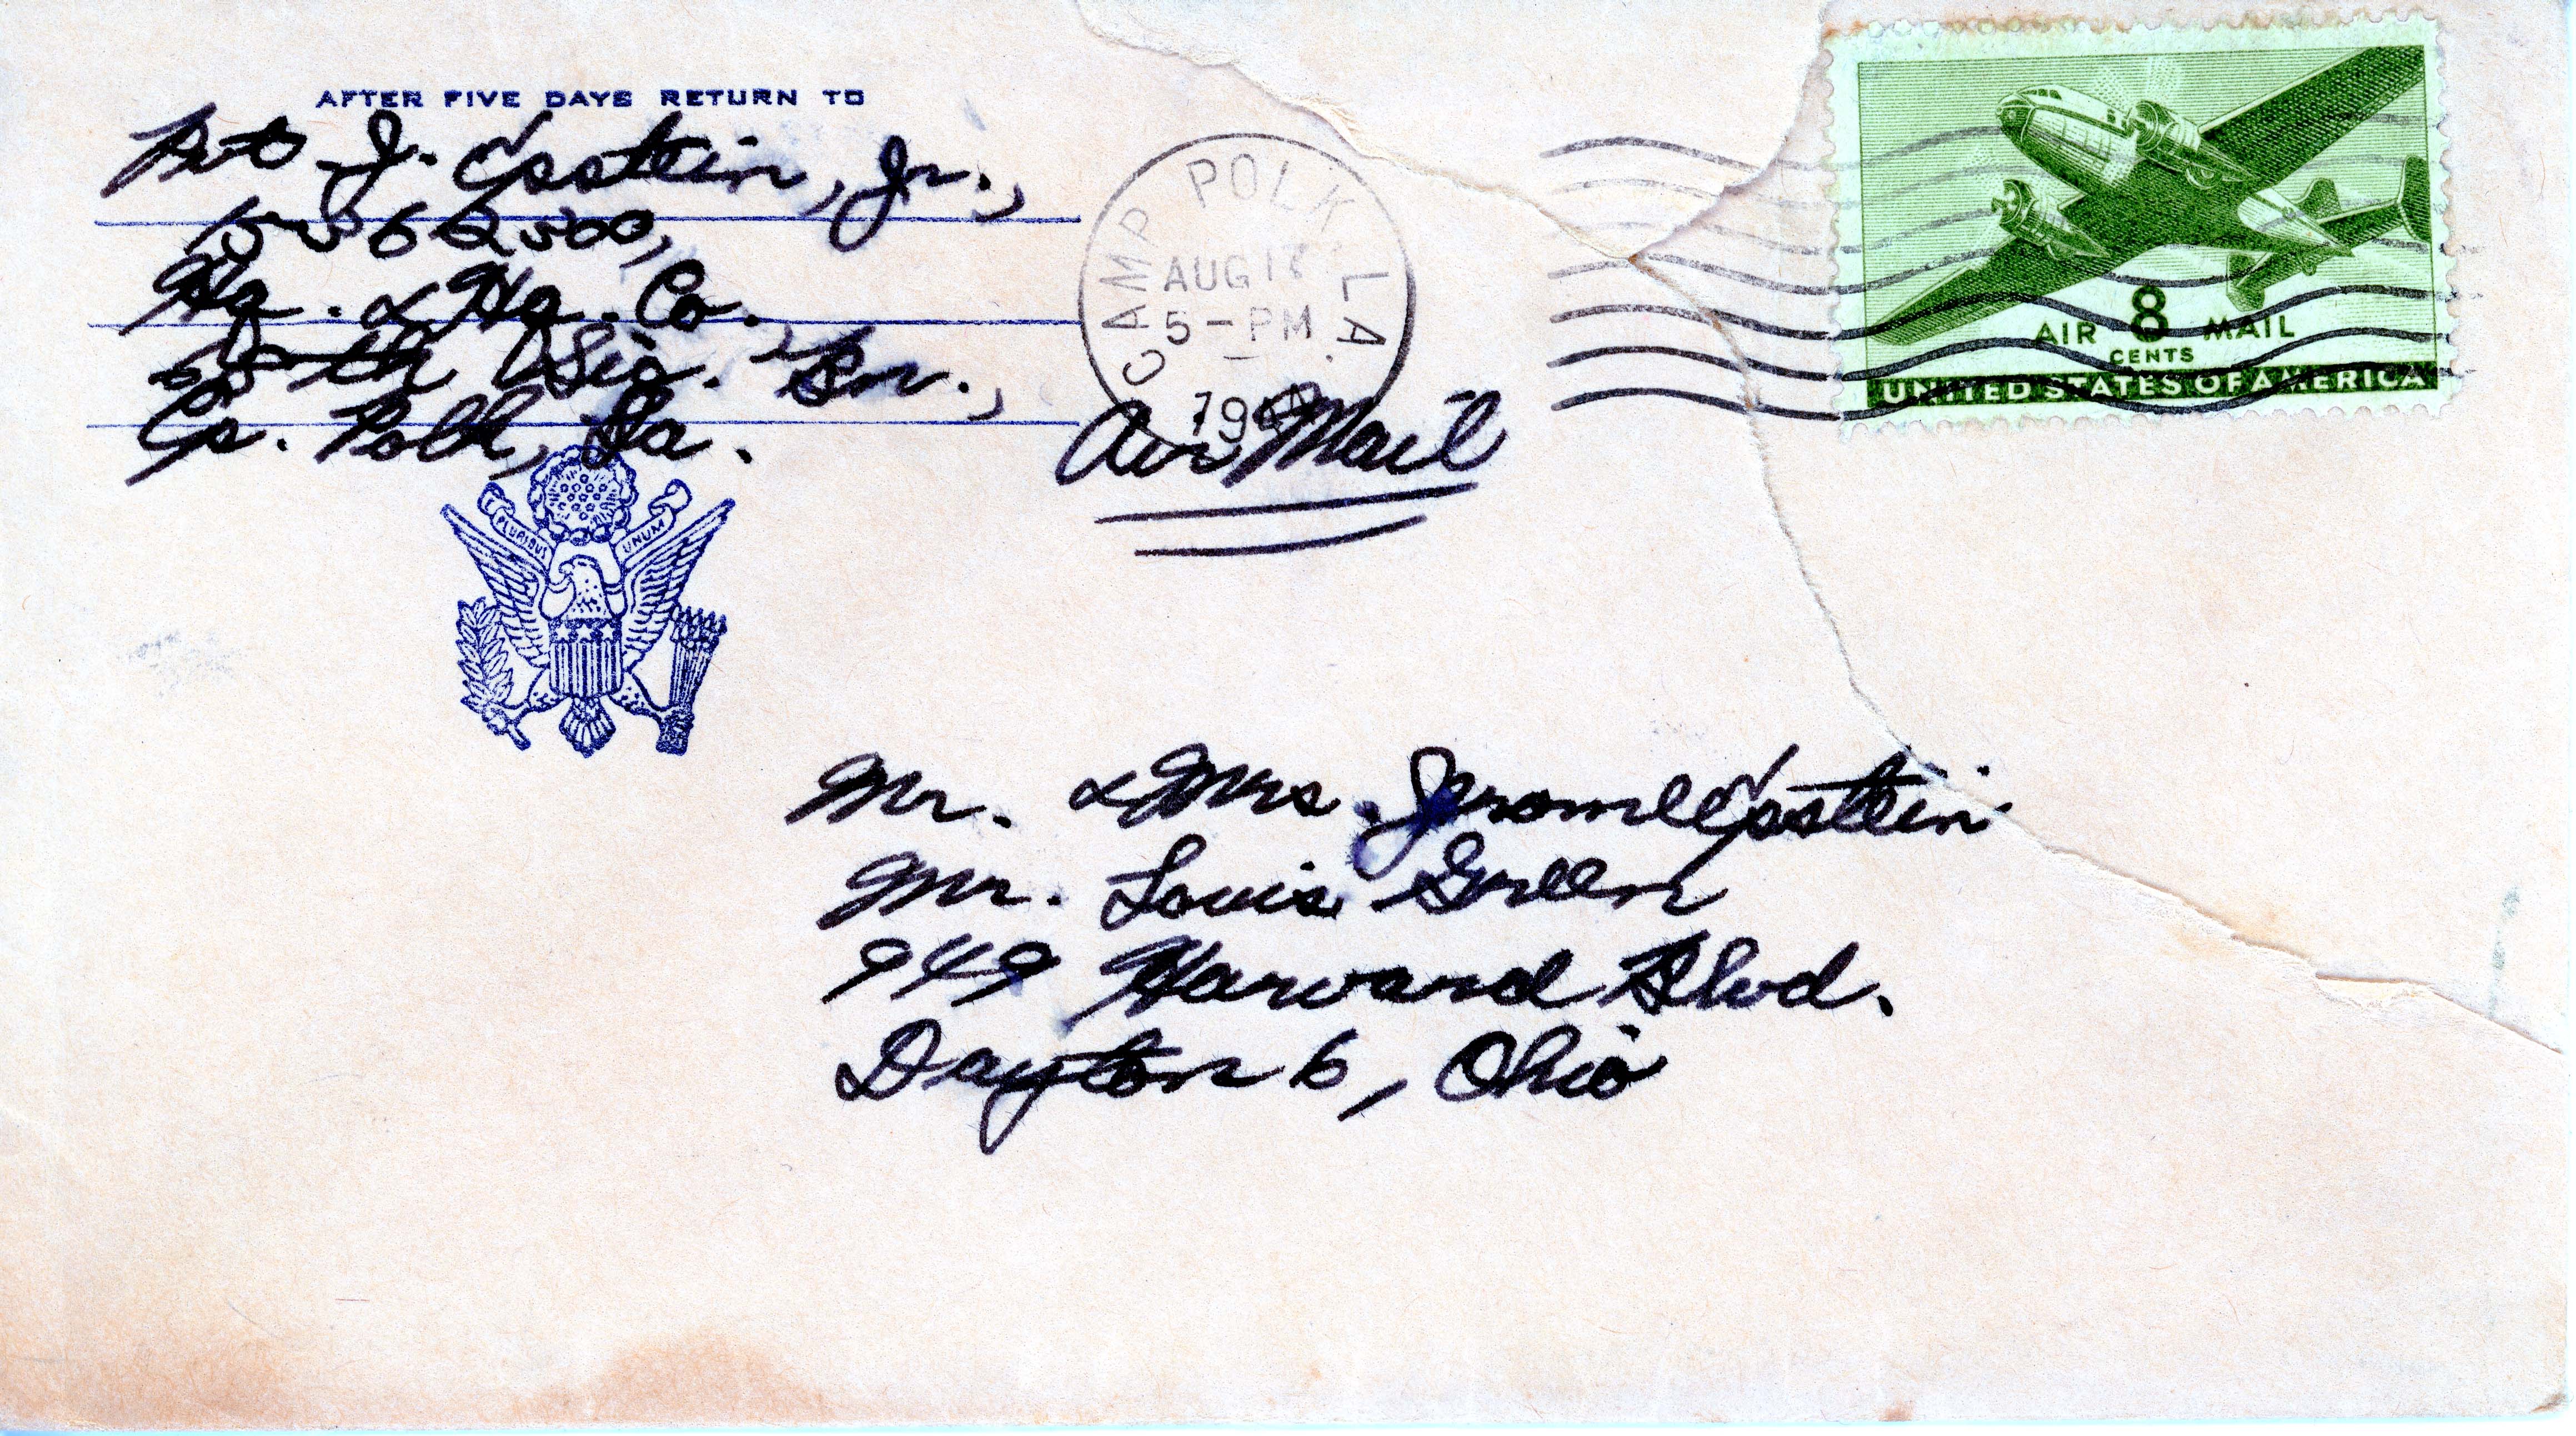 AFTER FIVE DAYS RETURN TO
Pvt J. Epstein, Jr.,
Hq. & Hq. Co.,
55th Sig. Bn.,
Cp. Polk, La.
PLURIBUS UNUM
CAMP POLK, LA.
AUG
5-PM
Air Mail
AIR 8 MAIL
CENTS
UNITED STATES OF AMERICA
Mr. & Mrs. Jerome Epstein
Mr. Louis Green
949 Harvard Blvd.
Dayton 6, Ohio